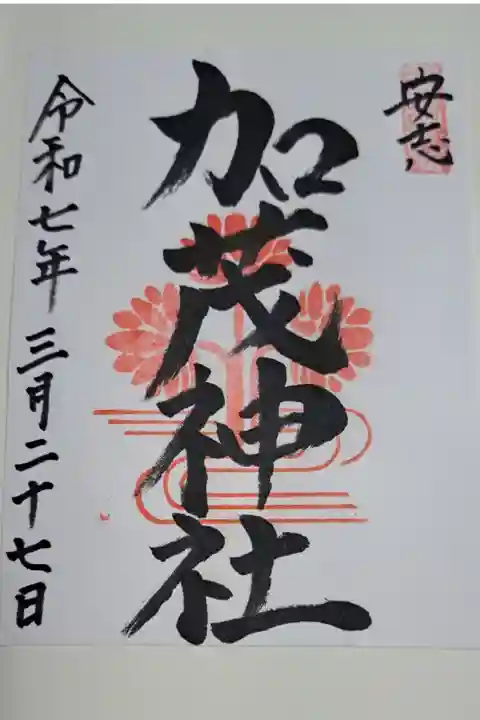 安志
加茂神社
令和七年三月二十七日